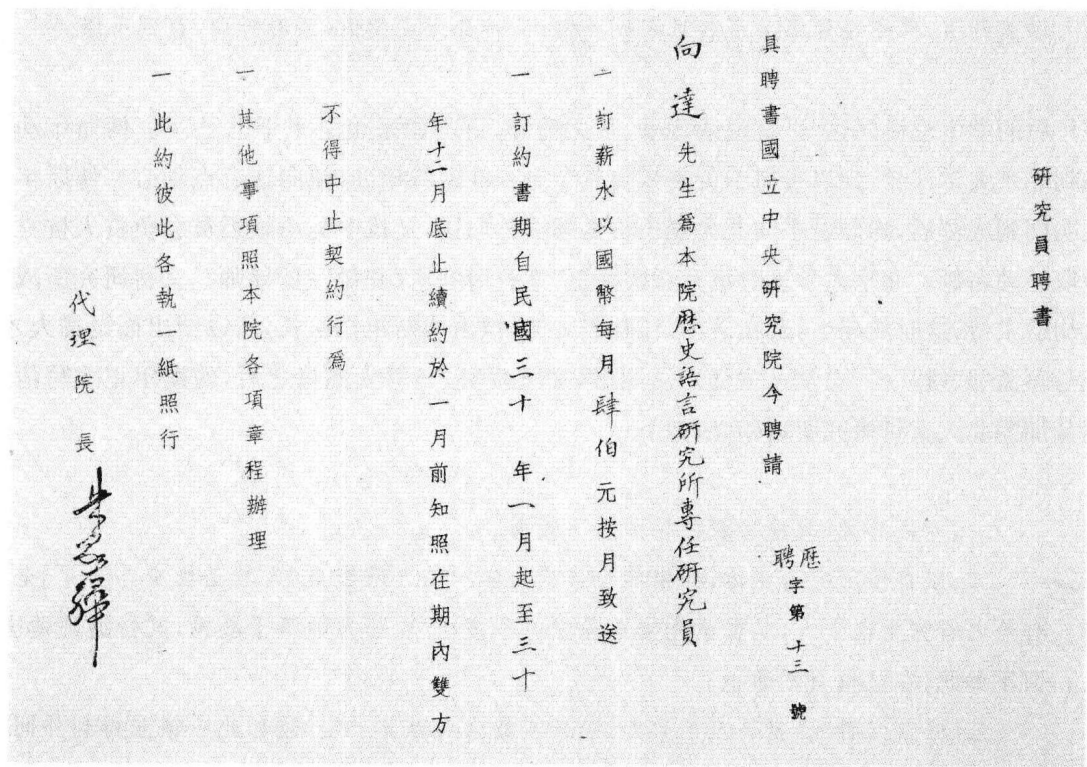 研究員聘書
歷聘字第十三號
具聘書國立中央研究院今聘請
向達先生爲本院歷史語言研究所專任研究員
一訂薪水以國幣每月肆伯元按月致送
一訂約書期自民國三十年一月起至三十
年十二月底止續約於一月前知照在期內雙方
不得中止契約行爲
一其他事項照本院各項章程辦理
一此約彼此各執一紙照行
代理院長朱家驊